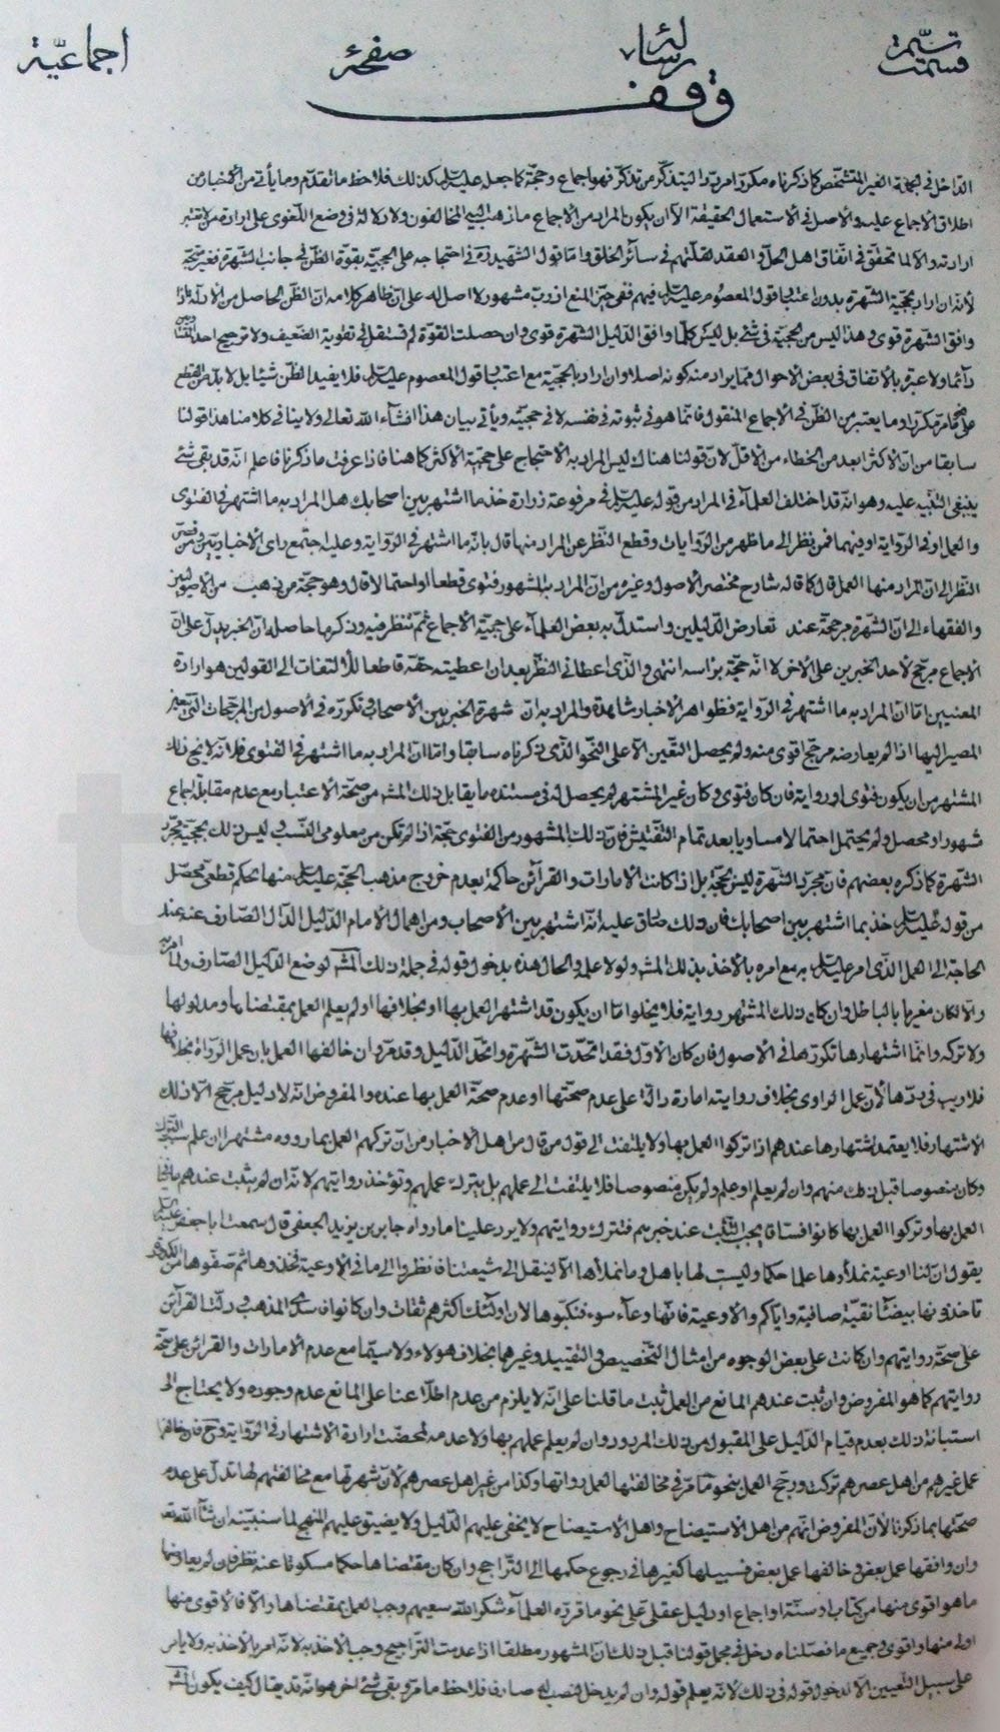 تتمّة قسمت رسالهٔ صفحهٔ اجماعيّة
وقف
الداخل فى الجملة الغير المتشخّص كما ذكرناه مكررا فهو اجماع وحجّة كما جعل عليه السلم كذلك فلاحظ ما تقدّم وما يأتى من الأخبار من
اطلاق الاجماع عليه والاصل فى الأستعمال الحقيقة الّا ان يكون المراد من الأجماع ما ذهب اليه المخالفون ولا دلالة فى وضع اللّغوى على ارادة
ارادته والّا لما تحقّق فى اتّفاق اهل الحلّ والعقد لقلّتهم فى سائر الخلق وامّا قول الشهيد ره فى احتجاجه على الحجيّة بقوّة الظّن فى جانب الشهرة فغير متجّه
لأنّه ان اراد بحجيّة الشهرة بدون اعتبار قول المعصوم عليه السلم فيهم ففى حيّز المنع اذ ربّ مشهور لا اصل له على انّ ظاهر كلامه انّ الظّن الحاصل من الأدلّة اذا
وافق الشهرة قوى وهذا ليس من الحجيّة فى شئ بل ليس كلّما وافق الدّليل الشهرة قوى وان حصلت القوّة لم تستقل الى تقوية الضّعيف ولا ترجيح احد
دائما ولا عبرة بالأتفاق فى بعض الاحوال ممّا يراد منه كونه اصلا وان اراد بالحجيّة مع اعتبار قول المعصوم عليه السلم فلا يفيد الظّن شيئا بل لا بدّ من القطع
على ما مرّ مكرّرا وما يعتبر من الظّن فى الأجماع المنقول فانّما هو فى ثبوته فى نفسه لا فى حجيّته ويأتى بيان هذا انشآء اللّه تعالى ولا ينافى كلامنا هذا قولنا
سابقا من انّ الأكثر ابعد من الخطاء من الأقلّ لانّ قولنا هناك ليس المراد به الأحتجاج على حجيّة الأكثر كما هنا فاذا عرفت ما ذكرنا فاعلم انّه قد بقى شئ
ينبغى التّنبيه عليه وهو انّه قد اختلف العلمآء فى المراد من قوله عليه السلم فى مرفوعة زرارة خذ بما اشتهر بين اصحابك هل المراد به ما اشتهر فى الفتوى
والعمل او فى الرّواية او فيهما فمن نظر الى ما ظهر من الرّوايات وقطع النّظر عن المراد منها قال بانّه ما اشتهر فى الرّواية وعليه اجتمع رأى الأخباريّين ومن قصر
النّظر الى انّ المراد منها العمل قال كما قاله شارح مختصر الأصول وغيره من انّ المراد بالمشهور فتوى قطعا او احتمالا قال وهو حجّة من ذهب من الاصوليّين
والفقهاء الى انّ الشهرة مرجّحة عند تعارض الدّليلين واستدلّ به بعض العلمآء على حجيّة الأجماع ثمّ تنظر فيه وذكر ما حاصله انّ الخبر يدلّ على انّ
الاجماع مرجّح لأحد الخبرين على الأخر لا انّه حجّة برأسه انتهى والّذى اعطانى النّظر بعد ان اعطيته حقّه قاطعا للألتفات الى القولين هو ارادة
المعنيين امّا انّ المراد به ما اشتهر فى الرّواية فظواهر الأخبار شاهدة والمراد به انّ شهرة الخبر بين الأصحاب فى تكرّره فى الأصول من المرجّحات الّتى يتعيّن
المصير اليها اذا لم يعارضه مرجّح اقوى منه ولم يحصل التّعين الّا على النّحو الّذى ذكرناه سابقا وامّا انّ المراد به ما اشتهر فى الفتوى فلأنّه لا يخ ذلك
المشتهر من ان يكون فتوى او رواية فان كان فتوى وكان غير المشتهر لم يحصل له فى مستنده ما يقابل ذلك المشهور من صحّة الأعتبار مع عدم مقابلة اجماع
مشهور او محصل ولم يحتمل احتمالا مساويا بعد تمام التّفتيش فانّ ذلك المشهور من الفتوى حجّة اذا لم تكن من معلومى النّسب وليس ذلك بحجيّة مجرّد
الشّهرة كما ذكره بعضهم فانّ مجرّد الشّهرة ليس بحجّة بل اذا كانت الأمارات والقرآئن حاكمة بعدم خروج مذهب الحجّة عليه السلم منها بحكم قطعىّ محصّل
من قوله عليه السلم خذ بما اشتهر بين اصحابك فانّ ذلك صادق عليه انّه اشتهر بين الأصحاب ومن اهمال الأمام الدّليل الدّال الصّارف عنه عند
الحاجة الى العمل الّذى امر عليه السلم به مع امره بالأخذ بذلك المشهور ولولا علمه والحال هذه بدخول قوله فى جملة ذلك المشهور لوضع الدّليل الصّارف ولما امر به
والّا لكان مغريا بالباطل وان كان ذلك المشتهر رواية فلا يخلوا امّا ان يكون قد اشتهر العمل بها او بخلافها او لم يعلم العمل بمقتضاها ومدلولها
ولا تركه وانّما اشتهارها تكرّرها فى الأصول فان كان الأوّل فقد اتّحدت الشّهرة واتّحد الدّليل وقد مرّ وان خالفها العمل بان عمل الرّواة بخلافها
فلا ريب فى ردّها لأنّ عمل الراوى بخلاف روايته امارة دالّة على عدم صحّتها او عدم صحّة العمل بها عنده والمفروض انّه لا دليل مرجّح الّا ذلك
الأشتهار فلا يعتمد باشتهارها عندهم اذا تركوا العمل بها ولا يلتفت الى قول من قال من اهل الأخبار من انّ تركهم العمل بما رووه مشتهر ان علم سبب التّرك
وكان منصوصا قبل ذلك منهم وان لم يعلم او علم ولم يكن منصوصا فلا يلتفت الى عملهم بل يترك عملهم وتؤخذ روايتهم لانّه ان لم يثبت عندهم
العمل بها وتركوا العمل بها كانوا فساقا يجب التثبت عند خبرهم فتترك روايتهم ولا يرد علينا ما رواه جابر بن يزيد الجعفى قال سمعت ابا جعفر عليه السلم
يقول انّ لنا اوعية نملأوها علما حكما وليست لها باهل وما نملأها الّا لينقل الى شيعتنا فانظروا الى ما فى الأوعية فخذوها ثم صفّوها من الكدورة
تأخذونها بيضآء نقيّة صافية وايّاكم والأوعية فانّها وعآء سوء فتنكّبوها لان اولئك اكثرهم ثقات وان كانوا فاسدى المذهب ودلّت القرآئن
على صحّة روايتهم وان كانت على بعض الوجوه من امثال التّخصيص والتّقييد وغيرهما بخلاف هولاء ولا سيّما مع عدم الأمارات والقرائن على صحّة
روايتهم كما هو المفروض وان ثبت عندهم المانع من العمل ثبت ما قلنا على انّه لا يلزم من عدم اطّلاعنا على المانع عدم وجوده ولا يحتاج الى
استبانة ذلك بعدم قيام الدّليل على المقبول من ذلك المردود وان لم يعلم عملهم بها ولا عدمه تمحضت ارادة الأشتهار فى الرّواية وح فان خالفها
عمل غيرهم من اهل عصرهم تركت ورجّح العمل بنحو ما مرّ فى مخالفتها العمل رواتها وكذا من غير اهل عصرهم لأنّ شهرتها مع مخالفتهم لها تدلّ على عدم
صحّتها بما ذكرنا لأنّ المفروض انّهم من اهل الأستيضاح واهل الأستيضاح لا يخفى عليهم الدّليل ولا يضيق عليهم المنهج لما سنبيّنه ان شآء اللّه تعالى
وان وافقها عمل بعض وخالفها عمل بعض فسبيلها كغيرها فى رجوع حكمها الى التّراجيح وان كان مقتضاها حكما مسكوتا عنه نظر فان لم يعارضها
ما هو اقوى منها من كتاب او سنّة او اجماع او دليل عقلى على نحو ما قرّره العلمآء شكر اللّه سعيهم وجب العمل بمقتضاها والّا فالأقوى منها
اولى منها واقوى وجميع ما فصّلناه دخل فى مجمل قولنا قبل ذلك انّ المشهور مطلقا اذا عدمت التّراجيح وجب الأخذ به لانّه امر بالأخذ به ولا يأمر
على سبيل التّعيين الّا لدخول قوله فى ذلك لأنّه يعلم قوله وان لم يدخل لنصب له صارفا فلاحظ ما مرّ وبقى شئ اخر هو انّه قد يقال كيف يكون المشهور